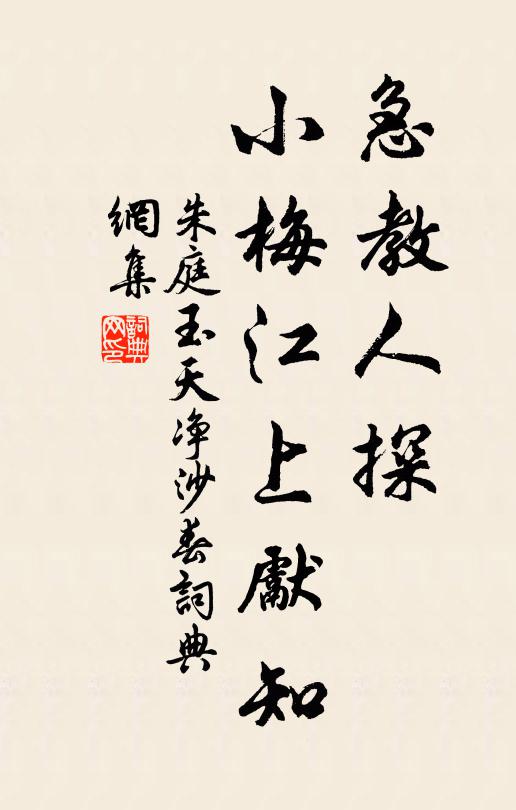 急教人探
小梅江上獻知
朱庭玉天净沙春詞典
網集
詞典
网印